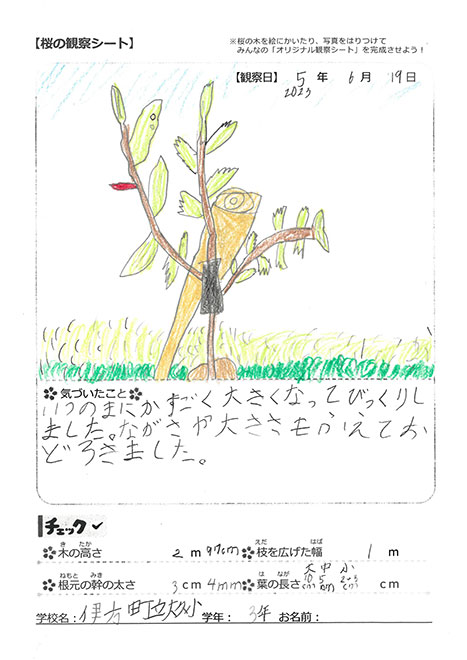 【桜の観察シート】
※桜の木を絵にかいたり、写真をはりつけて
みんなの「オリジナル観察シート」を完成させよう！
【観察日】 5 年 6 月 19 日
2023
気づいたこと
いつのまにかすごく大きくなってびっくりし
ました。ながさや大きさもふえてお
どろきました。
チェック✓
木の高さ 2 m 97cm 枝を広げた幅 1 m
きたか えだ はば
根元の幹の太さ 3 cm 4mm 葉の長さ 大10cm 中5cm 小2~3cm cm
ねもと みき は なが
学校名：伊方町立 小 学年： 3年 お名前：